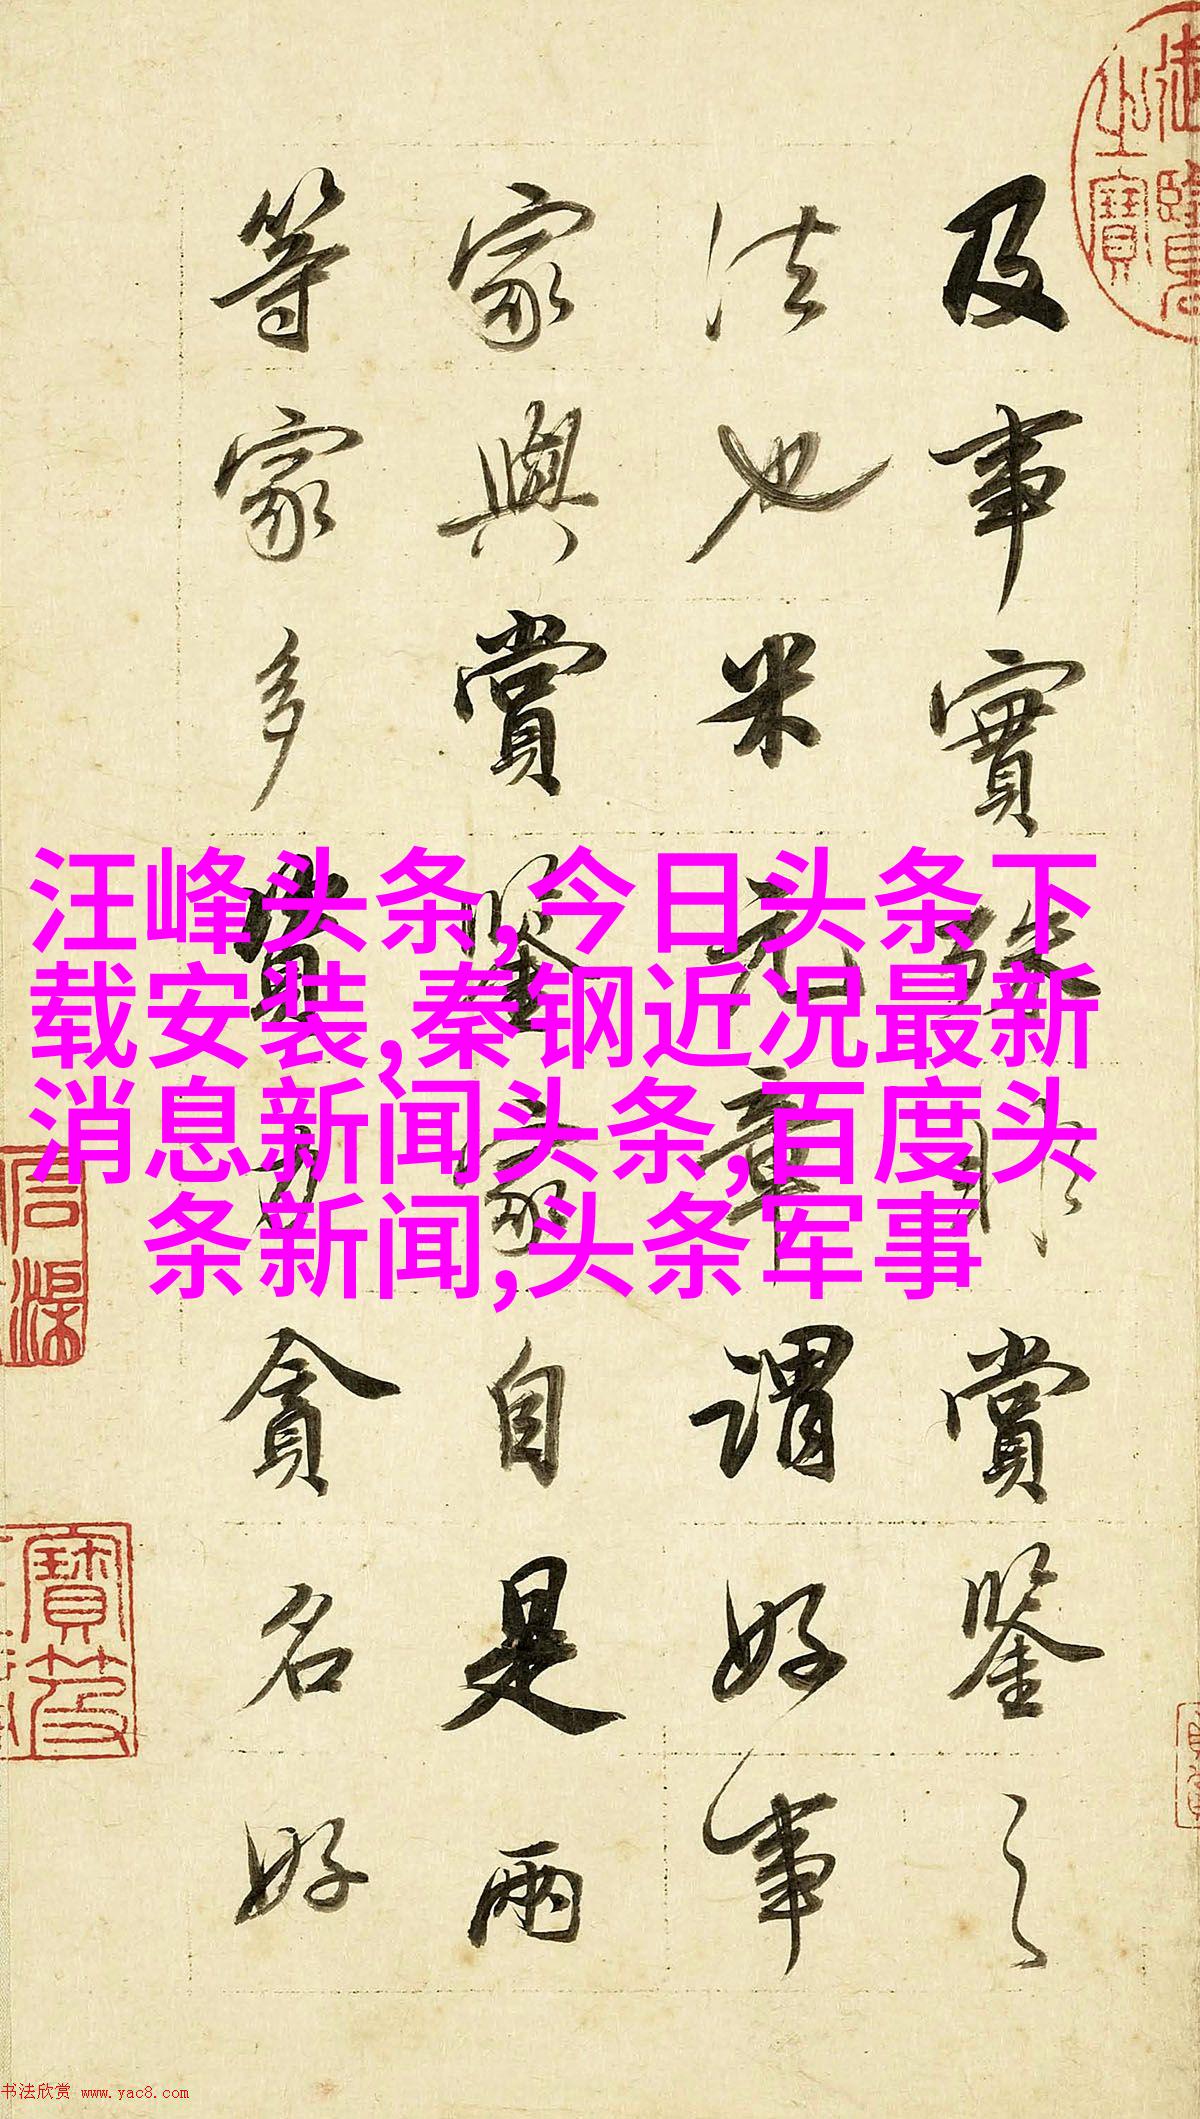 汪峰头条,今日头条下
载安装,秦钢近况最新
消息新闻头条,百度头
条新闻,头条军事
及事實賞鑒之
法也米元章謂好事
家與賞鑒家自是兩
等家多資力貪名好
书法欣赏 www.yac8.com